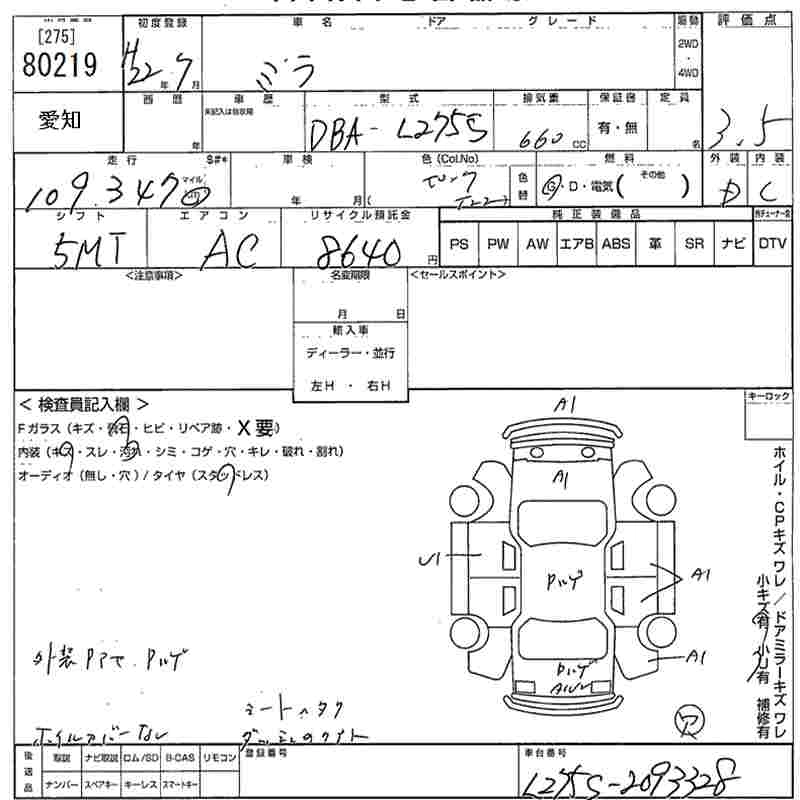 [275]
80219
愛知
初度登録
H22年7月
車名
ミラ
ドア
グレード
駆動
2WD
・
4WD
評価点
3.5
西暦
年
車歴
未記入は自家用
型式
DBA-L275S
排気量
660cc
保証書
有・無
定員
名
走行
109,347
マイル
km
$#*
車検
年 月
色(Col.No)
色替
燃料
G・D・電気( その他 )
外装
D
内装
C
シフト
5MT
エアコン
AC
リサイクル預託金
8640円
純正装備品
PS PW AW エアB ABS 革 SR ナビ
DTV
<注意事項>
名変期限
月 日
輸入車
ディーラー・並行
左H・右H
<セールスポイント>
キーロック
< 検査員記入欄 >
Fガラス(キズ・飛石・ヒビ・リペア跡・X要)
内装(キズ・スレ・汚れ・シミ・コゲ・穴・キレ・破れ・割れ)
オーディオ(無し・穴)/タイヤ(スタッドレス)
A1
A1
U1
A1
A1
ハゲ
ハゲ
ホイル・CPキズ ワレ/ドアミラーキズ ワレ
小キズ有 小U有 補修有
外装
ホイルカバーナシ
後送品
取説 ナビ取説 ロム/SD B-CAS リモコン
ナンバー スペアキー キーレス スマートキー
登録番号
車台番号
L275S-2093328